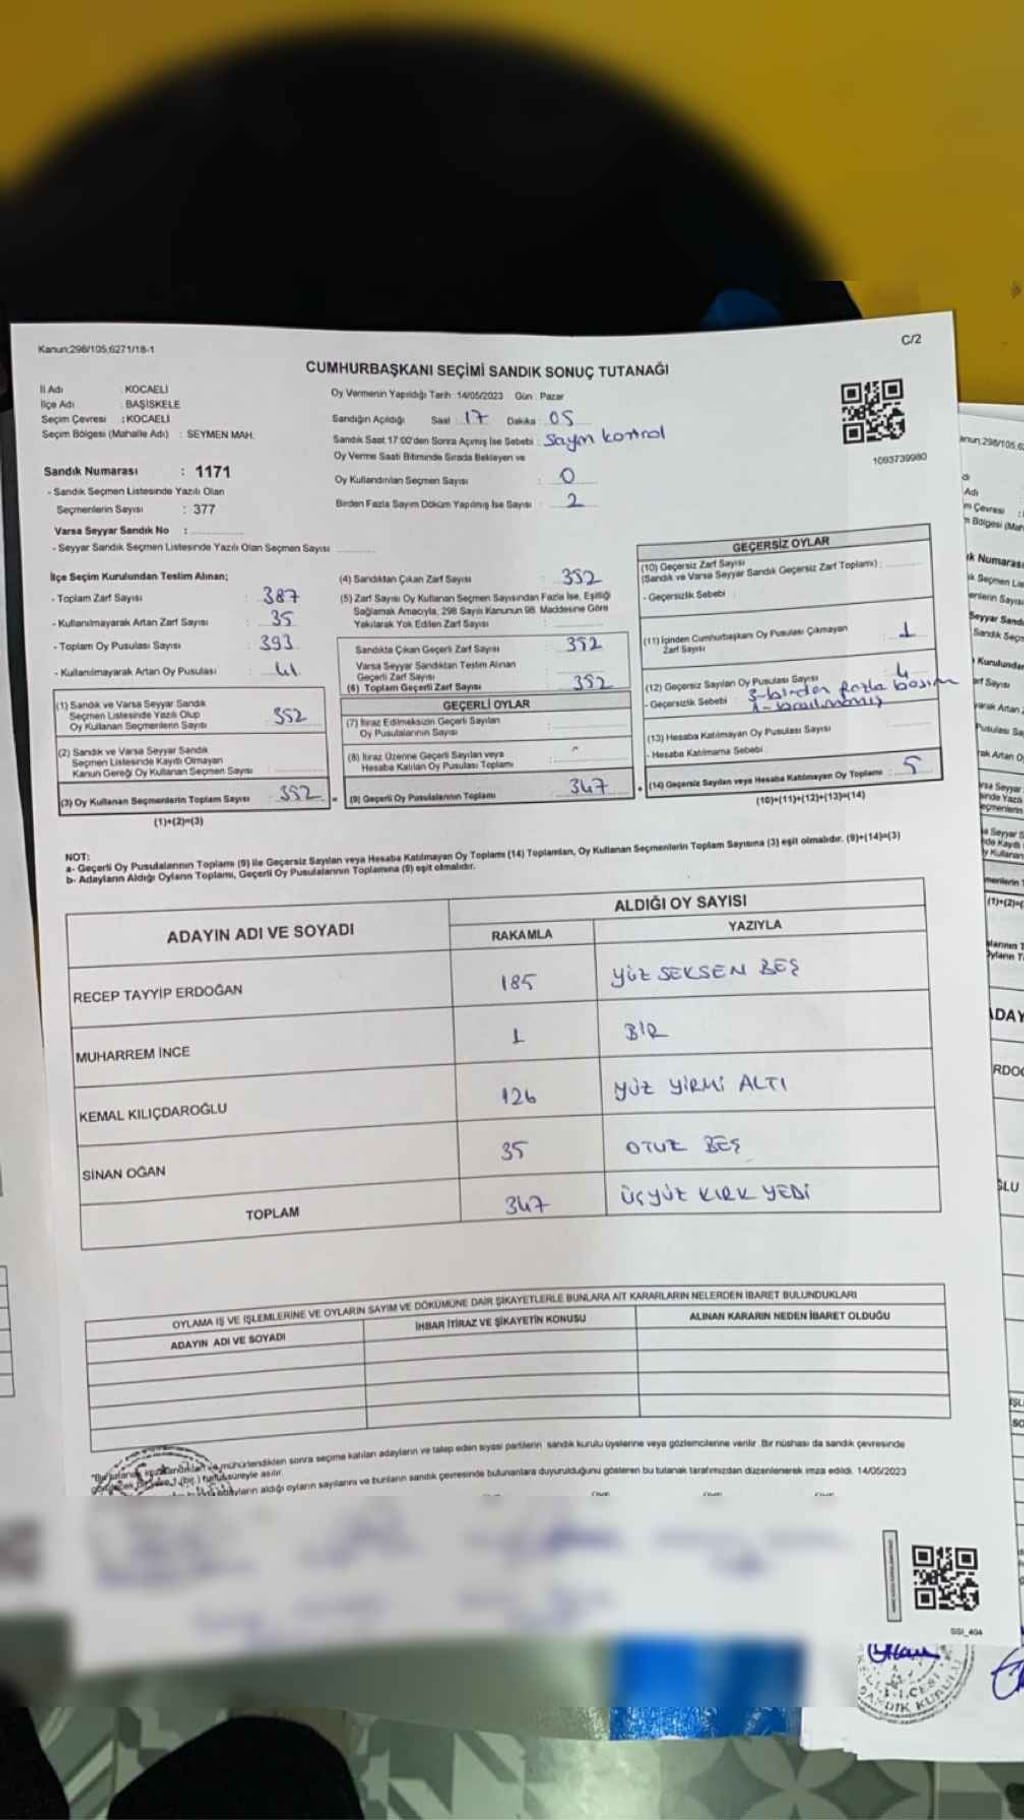 Kanun:298/105,6271/18-1
C/2
CUMHURBAŞKANI SEÇİMİ SANDIK SONUÇ TUTANAĞI
İl Adı : KOCAELİ
İlçe Adı : BAŞİSKELE
Seçim Çevresi : KOCAELİ
Seçim Bölgesi (Mahalle Adı) : SEYMEN MAH.
Sandık Numarası : 1171
- Sandık Seçmen Listesinde Yazılı Olan
Seçmenlerin Sayısı : 377
Varsa Seyyar Sandık No :
- Seyyar Sandık Seçmen Listesinde Yazılı Olan Seçmen Sayısı
Oy Vermenin Yapıldığı Tarih 14/05/2023 Gün : Pazar
Sandığın Açıldığı Saat : 17 Dakika : 05
Sandık Saat 17:00'den Sonra Açmış İse Sebebi : Sayım kontrol
Oy Verme Saati Bitiminde Sırada Bekleyen ve
Oy Kullandırılan Seçmen Sayısı : 0
Birden Fazla Sayım Döküm Yapılmış İse Sayısı : 2
1093739980
İlçe Seçim Kurulundan Teslim Alınan;
- Toplam Zarf Sayısı : 387
- Kullanılmayarak Artan Zarf Sayısı : 35
- Toplam Oy Pusulası Sayısı : 393
- Kullanılmayarak Artan Oy Pusulası : 41
(1) Sandık ve Varsa Seyyar Sandık
Seçmen Listesinde Yazılı Olup
Oy Kullanan Seçmenlerin Sayısı : 352
(2) Sandık ve Varsa Seyyar Sandık
Seçmen Listesinde Kayıtlı Olmayan
Kanun Gereği Oy Kullanan Seçmen Sayısı :
(3) Oy Kullanan Seçmenlerin Toplam Sayısı : 352 =
(1)+(2)=(3)
(4) Sandıktan Çıkan Zarf Sayısı : 352
(5) Zarf Sayısı Oy Kullanan Seçmen Sayısından Fazla İse, Eşitliği
Sağlamak Amacıyla, 298 Sayılı Kanunun 98. Maddesine Göre
Yakılarak Yok Edilen Zarf Sayısı
Sandıkta Çıkan Geçerli Zarf Sayısı : 352
Varsa Seyyar Sandıktan Teslim Alınan
Geçerli Zarf Sayısı :
(6) Toplam Geçerli Zarf Sayısı : 352
GEÇERLİ OYLAR
(7) İtiraz Edilmeksizin Geçerli Sayılan
Oy Pusulalarının Sayısı :
(8) İtiraz Üzerine Geçerli Sayılan veya
Hesaba Katılan Oy Pusulası Toplamı :
(9) Geçerli Oy Pusulalarının Toplamı : 347 +
GEÇERSİZ OYLAR
(10) Geçersiz Zarf Sayısı
(Sandık ve Varsa Seyyar Sandık Geçersiz Zarf Toplamı) :
- Geçersizlik Sebebi :
(11) İçinden Cumhurbaşkanı Oy Pusulası Çıkmayan
Zarf Sayısı : 1
(12) Geçersiz Sayılan Oy Pusulası Sayısı : 4
- Geçersizlik Sebebi : 3-birden fazla basım
(13) Hesaba Katılmayan Oy Pusulası Sayısı :
- Hesaba Katılmama Sebebi
(14) Geçersiz Sayılan veya Hesaba Katılmayan Oy Toplamı : 5
(10)+(11)+(12)+(13)=(14)
NOT:
a- Geçerli Oy Pusulalarının Toplamı (9) ile Geçersiz Sayılan veya Hesaba Katılmayan Oy Toplamı (14) Toplamları, Oy Kullanan Seçmenlerin Toplam Sayısına (3) eşit olmalıdır. (9)+(14)=(3)
b- Adayların Aldığı Oyların Toplamı, Geçerli Oy Pusulalarının Toplamına (9) eşit olmalıdır.
ADAYIN ADI VE SOYADI
ALDIĞI OY SAYISI
RAKAMLA YAZIYLA
RECEP TAYYİP ERDOĞAN 185 YÜZ SEKSEN BEŞ
MUHARREM İNCE 1 BİR
KEMAL KILIÇDAROĞLU 126 YÜZ YİRMİ ALTI
SİNAN OĞAN 35 OTUZ BEŞ
TOPLAM 347 ÜÇYÜZ KIRK YEDİ
OYLAMA İŞ VE İŞLEMLERİNE VE OYLARIN SAYIM VE DÖKÜMÜNE DAİR ŞİKAYETLERLE BUNLARA AİT KARARLARIN NELERDEN İBARET BULUNDUKLARI
ADAYIN ADI VE SOYADI İHBAR İTİRAZ VE ŞİKAYETİN KONUSU ALINAN KARARIN NEDEN İBARET OLDUĞU
mühürlendikten sonra seçime katılan adayların ve talep eden siyasi partilerin sandık kurulu üyelerine veya gözlemcilerine verilir. Bir nüshası da sandık çevresinde
süreyle asılır.
adayların aldığı oyların sayılarını ve bunların sandık çevresinde bulunanlara duyurulduğunu gösteren bu tutanak tarafımızdan düzenlenerek imza edildi. 14/05/2023
SSI_404